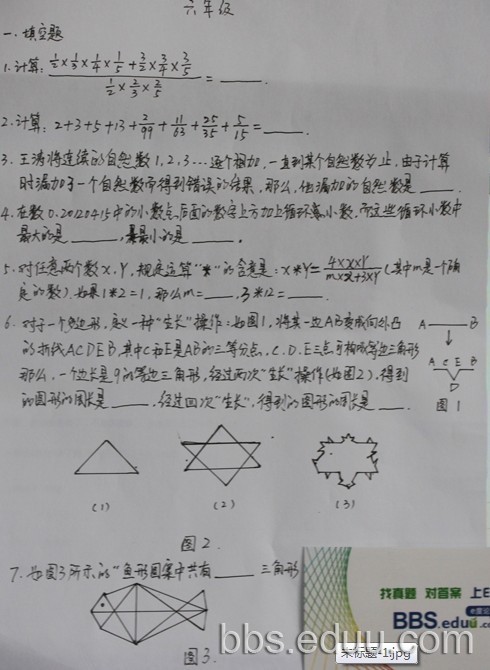 六年级
一、填空题
1.计算: (1/2×1/3×1/4×1/5+3/2×3/4×3/5)/(1/2×2/3×2/5) = ____.
2.计算: 2+3+5+13+2/99+11/63+25/35+5/15=____.
3.王涛将连续的自然数1,2,3…逐个相加,一直到某个自然数为止,由于计算
时漏加了一个自然数而得到错误的结果,那么,他漏加的自然数是____.
4.在数0.20120415中的小数点后面的数字上方加上循环点,
最大的是____,最小的是____。
5.对任意两个数x,Y,规定运算"*"的含意是:x*Y=4×X×Y/(m×x+3×Y)(其中m是一个确
定的数).如果1*2=1,那么m=____,3*12=____.
6.对于一个多边形,定义一种"生长"操作:如图1,将某一边AB变成向外凸
的折线ACDEB,其中C和E是AB的三等分点,C.D.E三点可构成等边三角形
那么,一个边长是9的等边三角形,经过两次"生长"操作(如图2),得到
的图形的周长是____,经过四次"生长",得到的图形的周长是____.
A B
A C E B
D
图1
(1) (2) (3)
图2.
7.如图3所示的"鱼形图案中共有____三角形
图3.
找真题 对答案 上E
BBS.eduu.c
bbs.eduu.com
未标题-1.jpg